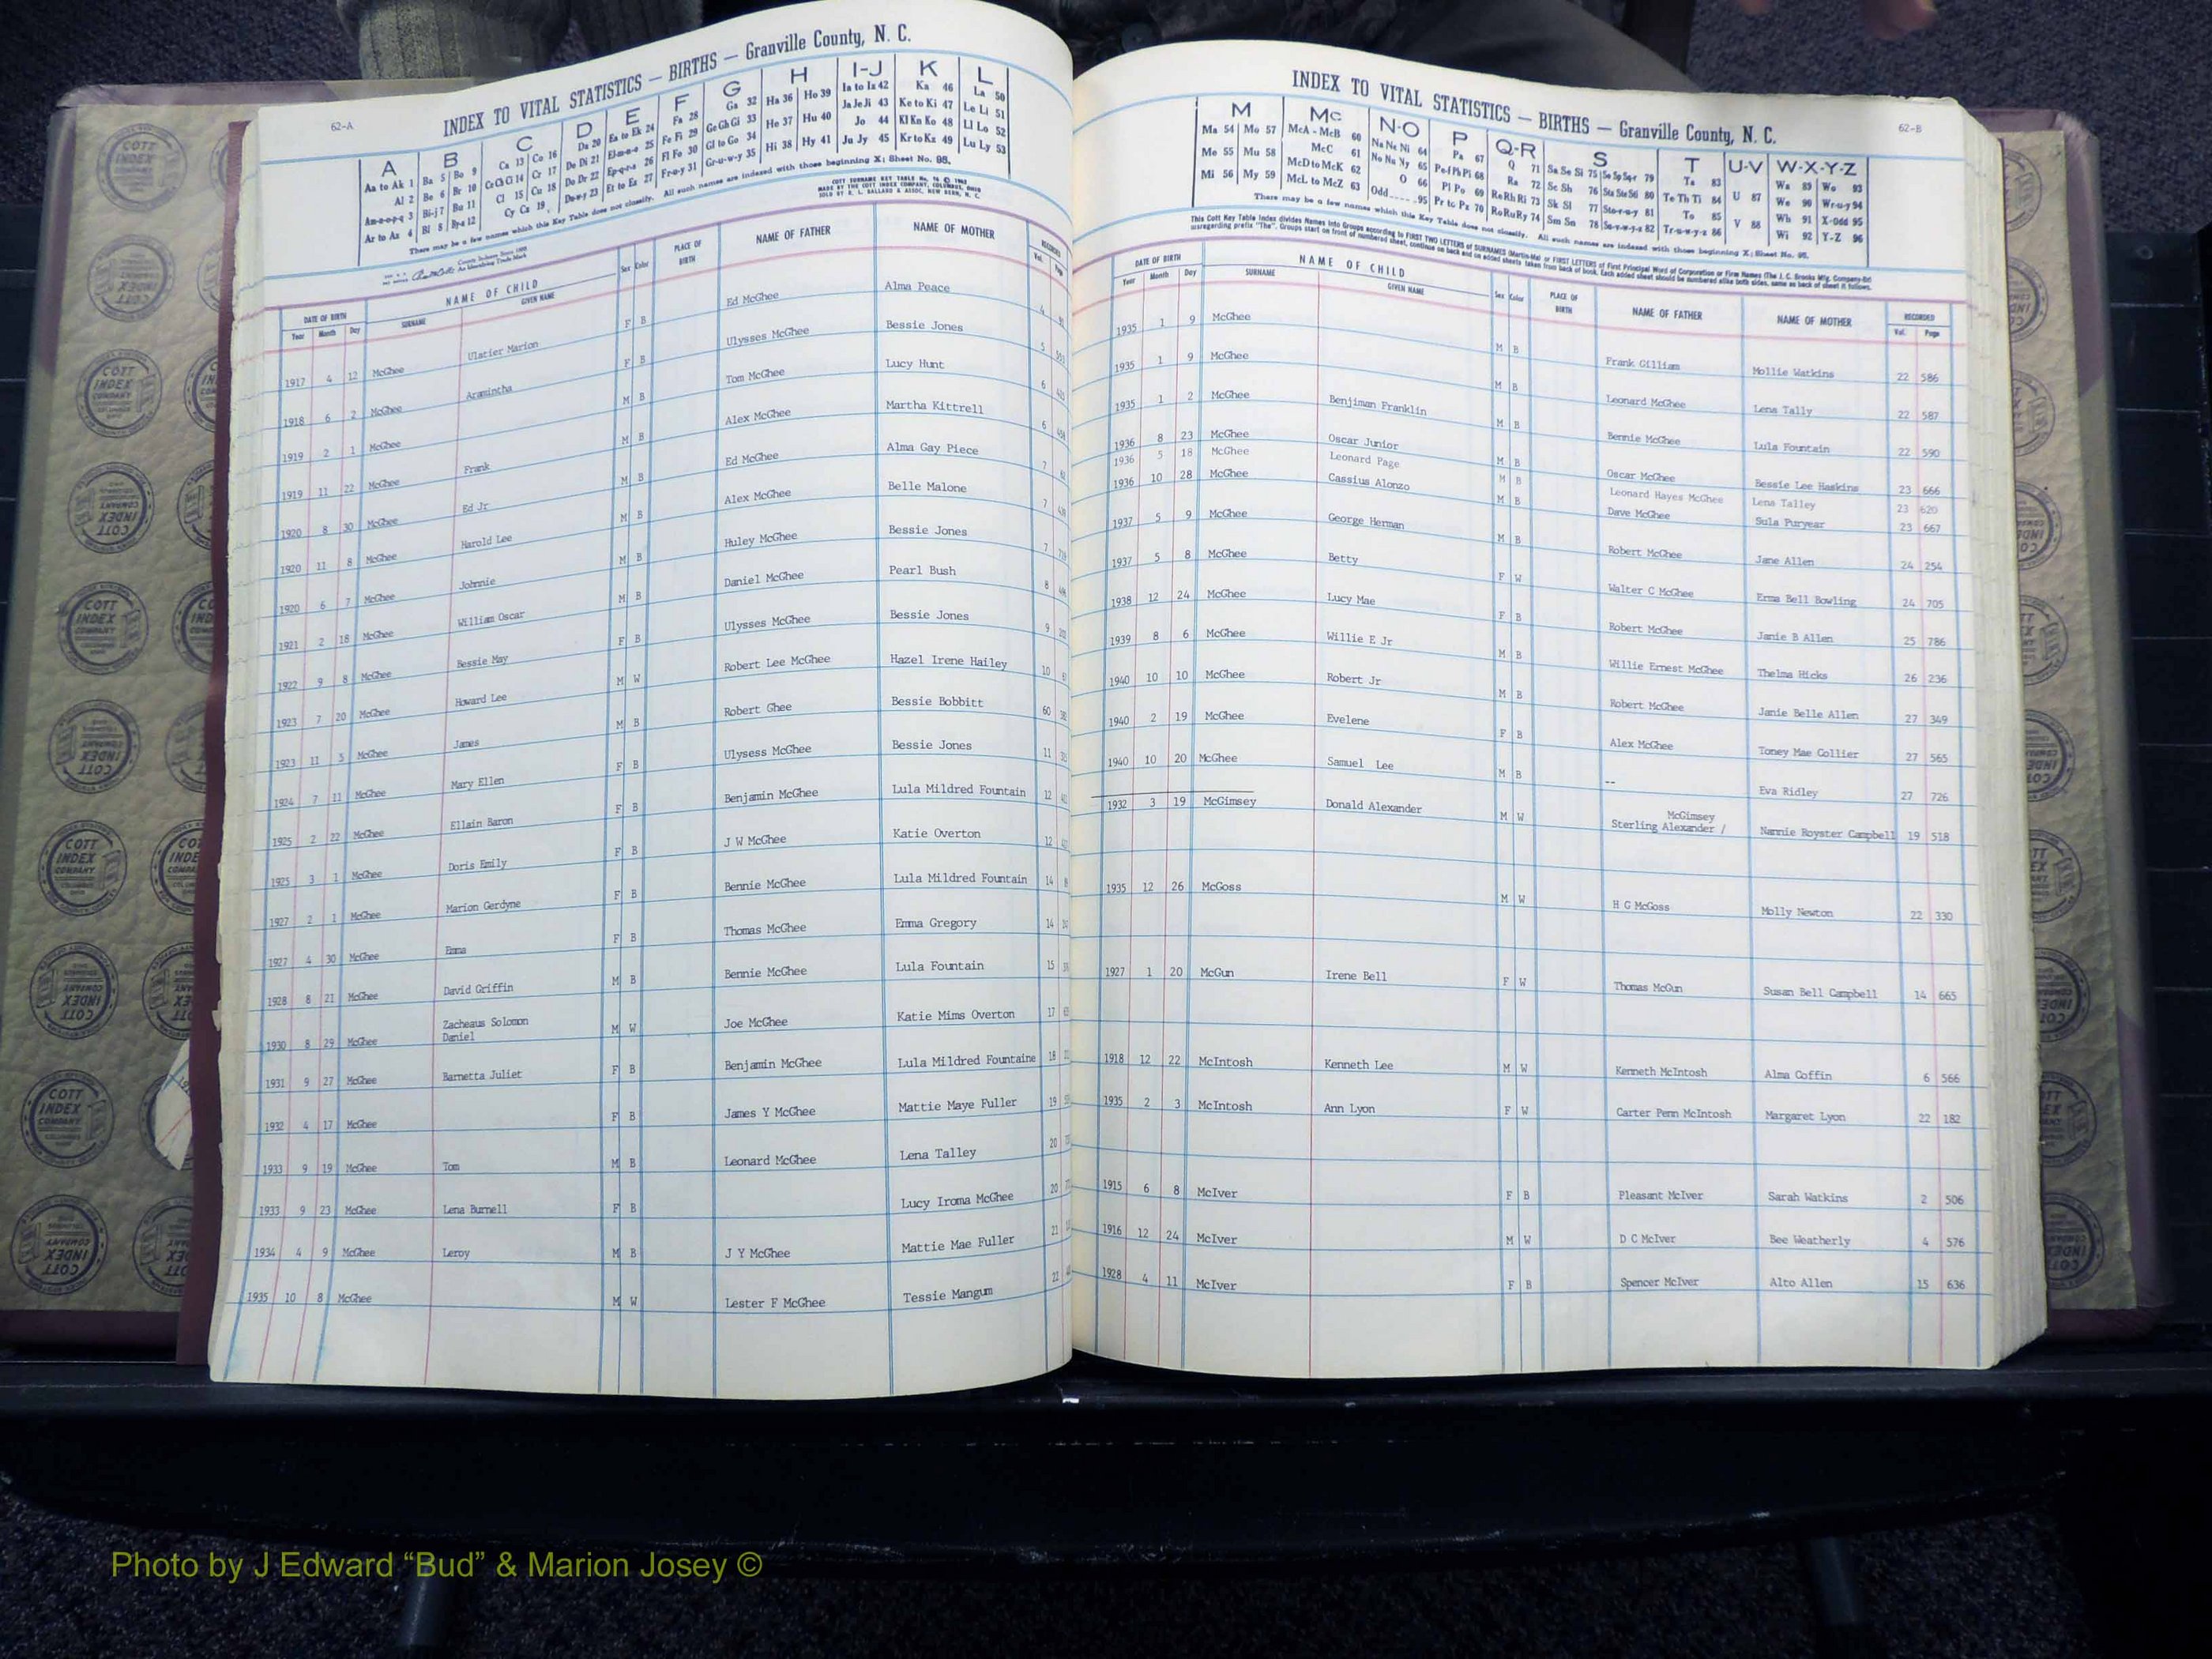 62-A
INDEX TO VITAL STATISTICS — BIRTHS — Granville County, N. C.
A B C D E F G H I-J K L
Aa to Ak 1 Ba 5 Bo 9 Ca 13 Co 16 Da 20 Ea to Ek 24 Fa 28 Ga 32 Ha 36 Ho 39 Ia to Iz 42 Ka 46 La 50
Al 2 Be 6 Br 10 Ce Ch Ci 14 Cr 17 De Di 21 El-m-n-o 25 Fe Fi 29 Ge Gh Gi 33 He 37 Hu 40 Ja Je Ji 43 Ke to Ki 47 Le Li 51
Am-n-o-p-q 3 Bi-j 7 Bu 11 Cl 15 Cu 18 Do Dr 22 Ep-q-r-s 26 Fl Fo 30 Gl to Go 34 Hi 38 Hy 41 Jo 44 Kl Kn Ko 48 Ll Lo 52
Ar to Az 4 Bl 8 By-z 12 Cy Cz 19 Du-w-y 23 Et to Ez 27 Fr-u-y 31 Gr-u-w-y 35 Ju Jy 45 Kr to Kz 49 Lu Ly 53
There may be a few names which this Key Table does not classify. All such names are indexed with those beginning X; Sheet No. 95.
DATE OF BIRTH NAME OF CHILD Sex Color PLACE OF BIRTH NAME OF FATHER NAME OF MOTHER RECORDED
Year Month Day SURNAME GIVEN NAME Vol. Page
1917 4 12 McGhee Ulatier Marion F B Ed McGhee Alma Peace 4
1918 6 2 McGhee Aramintha F B Ulysses McGhee Bessie Jones 5
1919 2 1 McGhee M B Tom McGhee Lucy Hunt 6
1919 11 22 McGhee Frank M B Alex McGhee Martha Kittrell 6
1920 8 30 McGhee Ed Jr M B Ed McGhee Alma Gay Piece 7
1920 11 8 McGhee Harold Lee M B Alex McGhee Belle Malone 7
1920 6 7 McGhee Johnnie M B Huley McGhee Bessie Jones 7
1921 2 18 McGhee William Oscar M B Daniel McGhee Pearl Bush 8
1922 9 8 McGhee Bessie May F B Ulysses McGhee Bessie Jones 9
1923 7 20 McGhee Howard Lee M W Robert Lee McGhee Hazel Irene Hailey 10
1923 11 5 McGhee James M B Robert Ghee Bessie Bobbitt 60
1924 7 11 McGhee Mary Ellen F B Ulysess McGhee Bessie Jones 11
1925 2 22 McGhee Ellain Baron F B Benjamin McGhee Lula Mildred Fountain 12
1925 3 1 McGhee Doris Emily F B J W McGhee Katie Overton 12
1927 2 1 McGhee Marion Gerdyne F B Bennie McGhee Lula Mildred Fountain 14
1927 4 30 McGhee Emma F B Thomas McGhee Emma Gregory 14
1928 8 21 McGhee David Griffin M B Bennie McGhee Lula Fountain 15
1930 8 29 McGhee Zacheaus Solomon Daniel M W Joe McGhee Katie Mims Overton 17
1931 9 27 McGhee Barnetta Juliet F B Benjamin McGhee Lula Mildred Fountaine 18
1932 4 17 McGhee F B James Y McGhee Mattie Maye Fuller 19
1933 9 19 McGhee Tom M B Leonard McGhee Lena Talley 20
1933 9 23 McGhee Lena Burnell F B Lucy Iroma McGhee 20
1934 4 9 McGhee Leroy M B J Y McGhee Mattie Mae Fuller 21
1935 10 8 McGhee M W Lester F McGhee Tessie Mangum 22
62-B
INDEX TO VITAL STATISTICS — BIRTHS — Granville County, N. C.
M Mc N-O P Q-R S T U-V W-X-Y-Z
Ma 54 Mo 57 McA - McB 60 Na Ne Ni 64 Pa 67 Q 71 Sa Se Si 75 So Sp Sq-r 79 Ta 83 U 87 Wa 89 Wo 93
Me 55 Mu 58 McC 61 No Nu Ny 65 Pe-f Ph Pi 68 Ra 72 Sc Sh 76 Sta Ste Sti 80 Te Th Ti 84 V 88 We 90 Wr-u-y 94
Mi 56 My 59 McD to McK 62 O 66 Pl Po 69 Re Rh Ri 73 Sk Sl 77 Sto-r-u-y 81 To 85 Wh 91 X-Odd 95
McL to McZ 63 Odd 95 Pr to Pz 70 Ro Ru Ry 74 Sm Sn 78 Su-v-w-y-z 82 Tr-u-w-y-z 86 Wi 92 Y-Z 96
There may be a few names which this Key Table does not classify. All such names are indexed with those beginning X; Sheet No. 95.
DATE OF BIRTH NAME OF CHILD Sex Color PLACE OF BIRTH NAME OF FATHER NAME OF MOTHER RECORDED
Year Month Day SURNAME GIVEN NAME Vol. Page
1935 1 9 McGhee M B Frank Gilliam Mollie Watkins 22 586
1935 1 9 McGhee M B Leonard McGhee Lena Tally 22 587
1935 1 2 McGhee Benjiman Franklin M B Bennie McGhee Lula Fountain 22 590
1936 8 23 McGhee Oscar Junior M B Oscar McGhee Bessie Lee Haskins 23 666
1936 5 18 McGhee Leonard Page M B Leonard Hayes McGhee Lena Talley 23 620
1936 10 28 McGhee Cassius Alonzo M B Dave McGhee Sula Puryear 23 667
1937 5 9 McGhee George Herman M B Robert McGhee Jane Allen 24 254
1937 5 8 McGhee Betty F W Walter C McGhee Erma Bell Bowling 24 705
1938 12 24 McGhee Lucy Mae F B Robert McGhee Janie B Allen 25 786
1939 8 6 McGhee Willie E Jr M B Willie Ernest McGhee Thelma Hicks 26 236
1940 10 10 McGhee Robert Jr M B Robert McGhee Janie Belle Allen 27 349
1940 2 19 McGhee Evelene F B Alex McGhee Toney Mae Collier 27 565
1940 10 20 McGhee Samuel Lee M B -- Eva Ridley 27 726
1932 3 19 McGimsey Donald Alexander M W McGimsey Sterling Alexander / Nannie Royster Campbell 19 518
1935 12 26 McGoss M W H G McGoss Molly Newton 22 330
1927 1 20 McGun Irene Bell F W Thomas McGun Susan Bell Campbell 14 665
1918 12 22 McIntosh Kenneth Lee M W Kenneth McIntosh Alma Coffin 6 566
1935 2 3 McIntosh Ann Lyon F W Carter Penn McIntosh Margaret Lyon 22 182
1915 6 8 McIver F B Pleasant McIver Sarah Watkins 2 506
1916 12 24 McIver M W D C McIver Bee Weatherly 4 576
1928 4 11 McIver F B Spencer McIver Alto Allen 15 636
Photo by J Edward “Bud” & Marion Josey ©